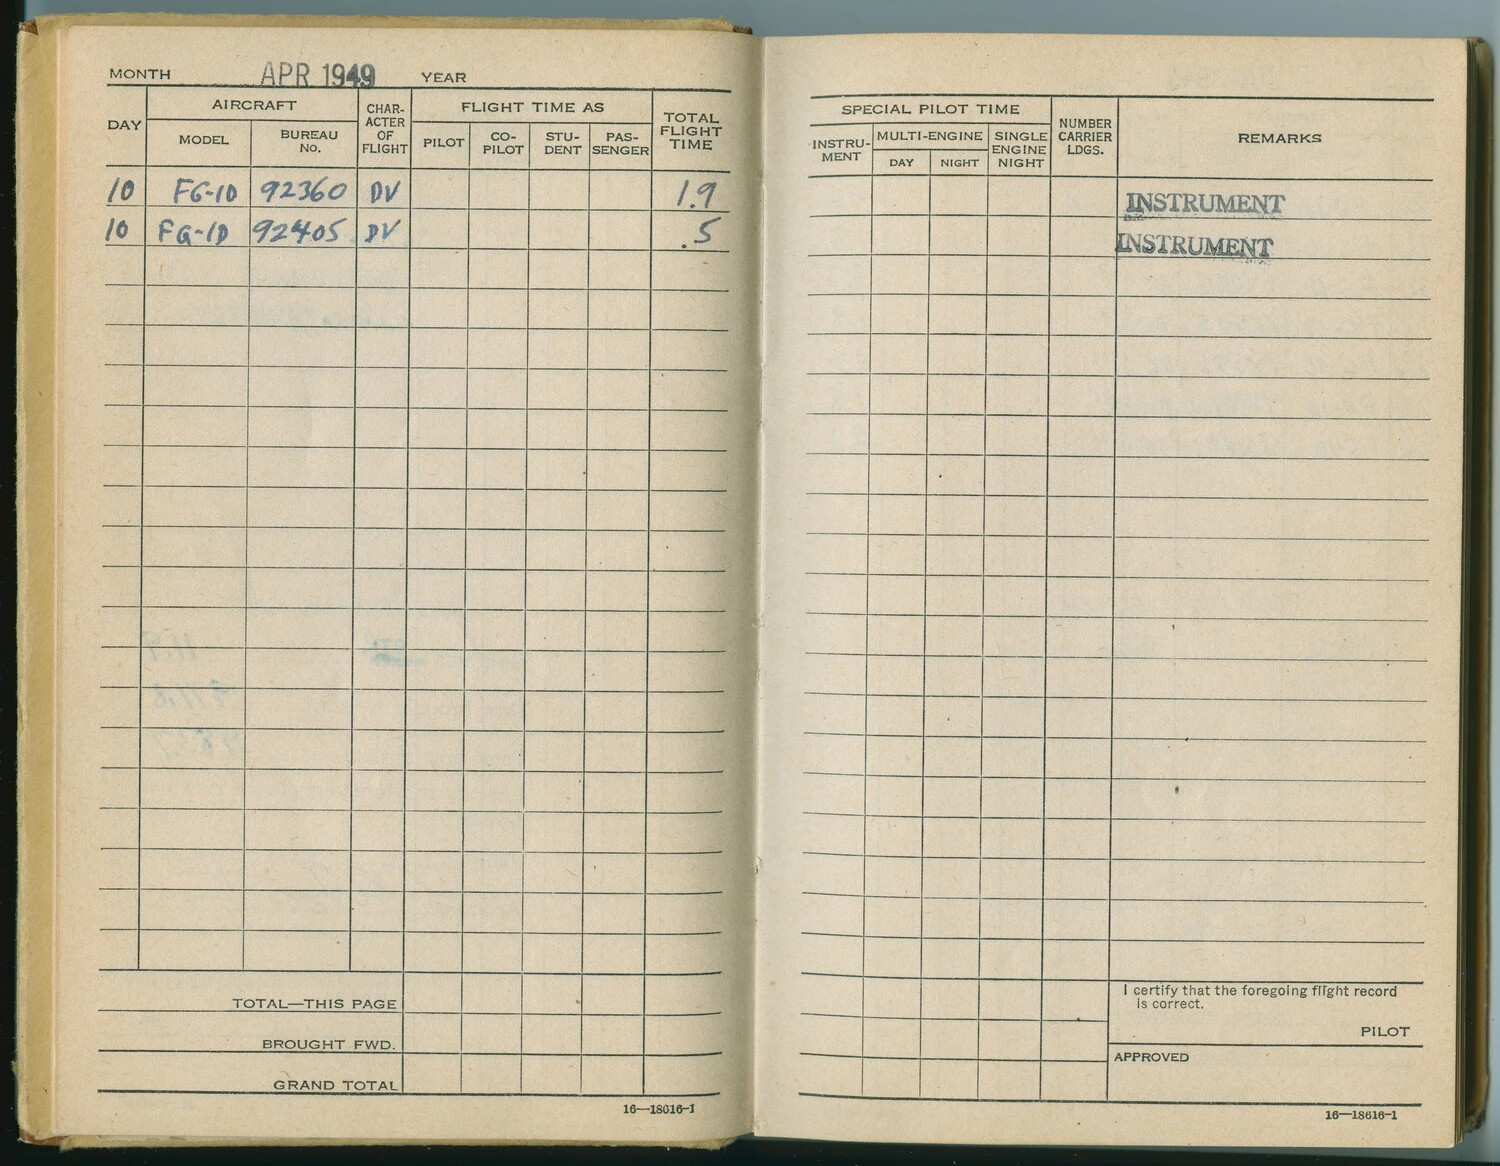 MONTH APR 1949 YEAR
DAY
AIRCRAFT
MODEL
BUREAU
No.
CHAR-
ACTER
OF
FLIGHT
FLIGHT TIME AS
PILOT
CO-
PILOT
STU-
DENT
PAS-
SENGER
TOTAL
FLIGHT
TIME
10 FG-1D 92360 DV 1.9
10 FG-1D 92405 DV .5
TOTAL—THIS PAGE
BROUGHT FWD.
GRAND TOTAL
16—18616-1
SPECIAL PILOT TIME
INSTRU-
MENT
MULTI-ENGINE
DAY
NIGHT
SINGLE
ENGINE
NIGHT
NUMBER
CARRIER
LDGS.
REMARKS
INSTRUMENT
INSTRUMENT
I certify that the foregoing flight record
is correct.
PILOT
APPROVED
16—18616-1